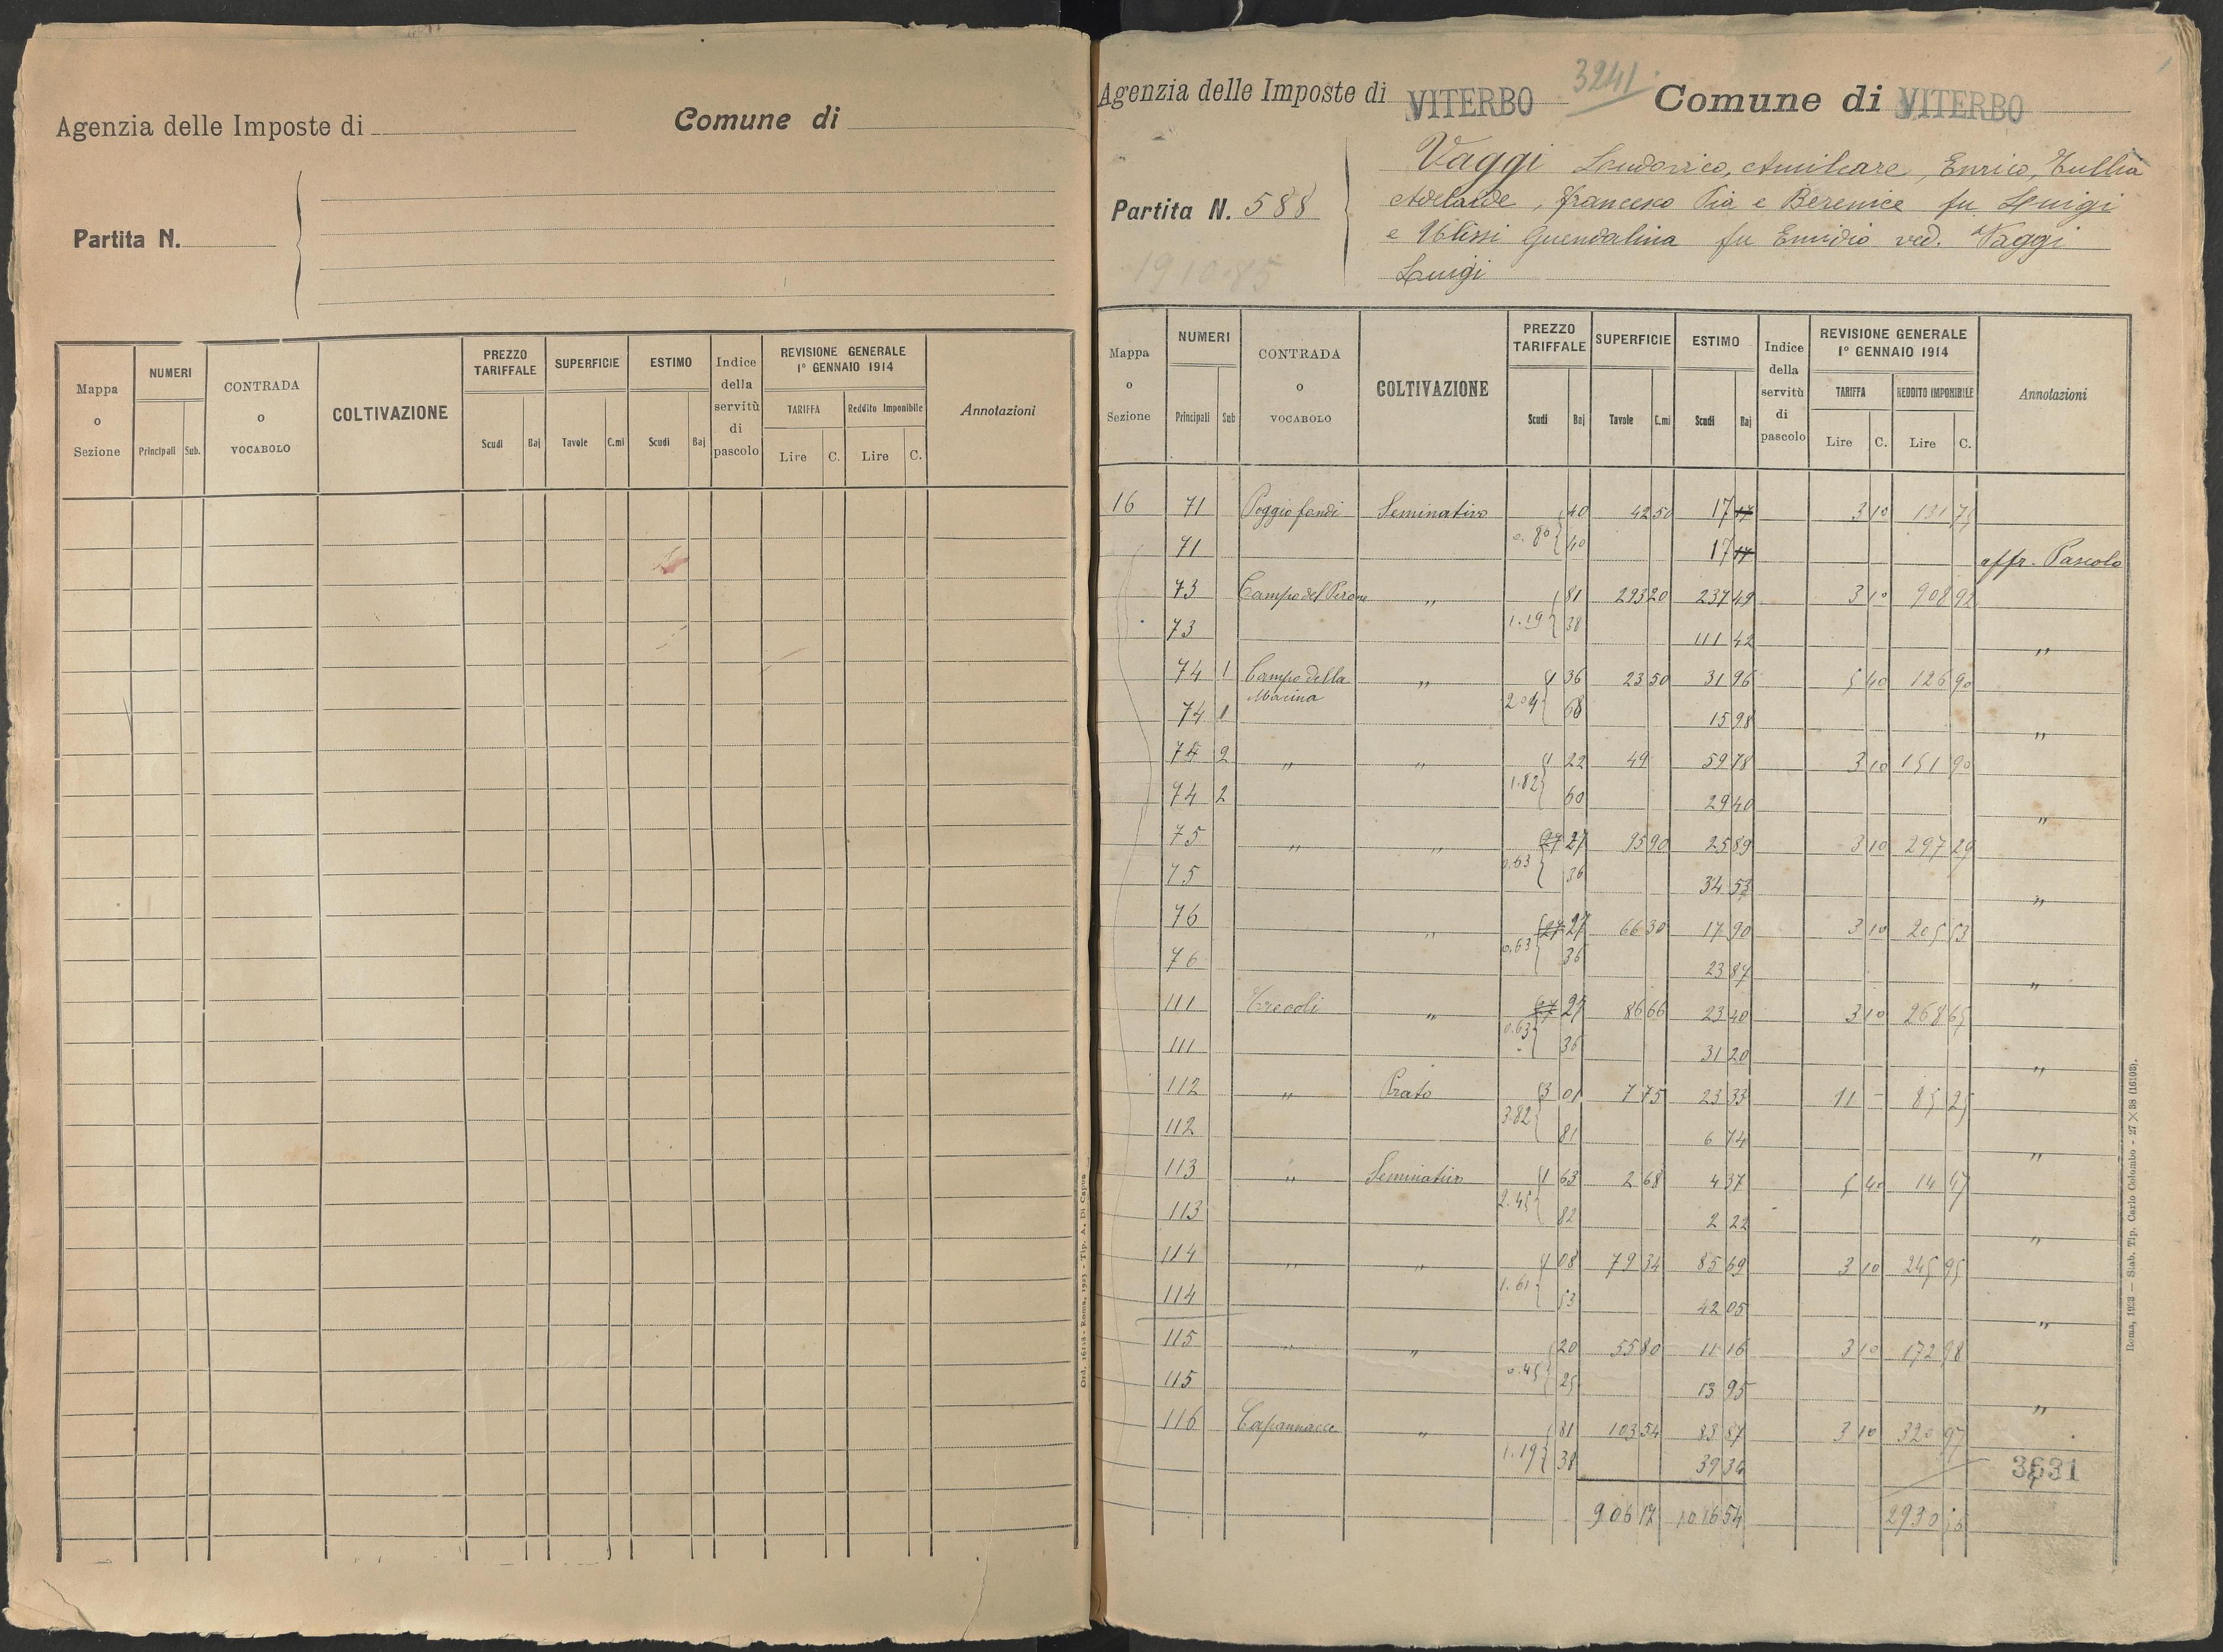 Agenzia delle Imposte di
Comune di
Partita N.
Mappa o Sezione
NUMERI
Principali Sub.
CONTRADA o VOCABOLO
COLTIVAZIONE
PREZZO TARIFFALE
Scudi Baj
SUPERFICIE
Tavole C.mi
ESTIMO
Scudi Baj
Indice della servitù di pascolo
REVISIONE GENERALE
1° GENNAIO 1914
TARIFFA Reddito Imponibile
Lire C. Lire C.
Annotazioni
Ord. - Roma, 1923 - Tip. A. Di Capua
3241
Agenzia delle Imposte di VITERBO Comune di VITERBO
Partita N. 588
Vaggi Ludovico, Amilcare, Enrico, Tullia
Adelaide, Francesco Pia e Berenice fu Luigi
e Ulissi Guendalina fu Emidio ved. Vaggi
Luigi
Mappa o Sezione
NUMERI
Principali Sub
CONTRADA o VOCABOLO
COLTIVAZIONE
PREZZO TARIFFALE
Scudi Baj
SUPERFICIE
Tavole C.mi
ESTIMO
Scudi Baj
Indice della servitù di pascolo
REVISIONE GENERALE
1° GENNAIO 1914
TARIFFA REDDITO IMPONIBILE
Lire C. Lire C.
Annotazioni
16 71 Poggio fondi Seminativo 40 42 50 17 17 3 10 131 75
71 0.80 40 17 17 affr. Pascolo
73 Campo del 81 293 20 237 49 3 10 908 92
73 1.19 38 111 42 "
74 1 Campo della Macina " 1 36 23 50 31 96 5 40 126 90
74 1 2 04 68 15 98 "
74 2 " " 1 22 49 59 78 3 10 151 90
74 2 1.82 60 29 40 "
75 " " 27 27 95 90 25 89 3 10 297 29
75 0.63 36 34 53 "
76 " 27 27 66 30 17 90 3 10 205 53
76 0.63 36 23 87 "
111 Trecoli " 27 27 86 66 23 40 3 10 268 65
111 0.63 36 31 20 "
112 " Prato 3 01 7 75 23 33 11 - 85 25
112 3.82 81 6 74 "
113 " Seminativo 1 63 2 68 4 37 5 40 14 47
113 2.45 82 2 22 "
114 " " 1 08 79 34 85 69 3 10 245 95
114 1.61 53 42 05 "
115 " " 20 55 80 11 16 3 10 172 98
115 0.45 25 13 95 "
116 Capannacce " 81 103 54 83 87 3 10 320 97
1.19 38 39 34 3631
906 17 1016 54 2930
Roma, 1923 — Stab. Tip. Carlo Colombo - 27 × 38 (16103).